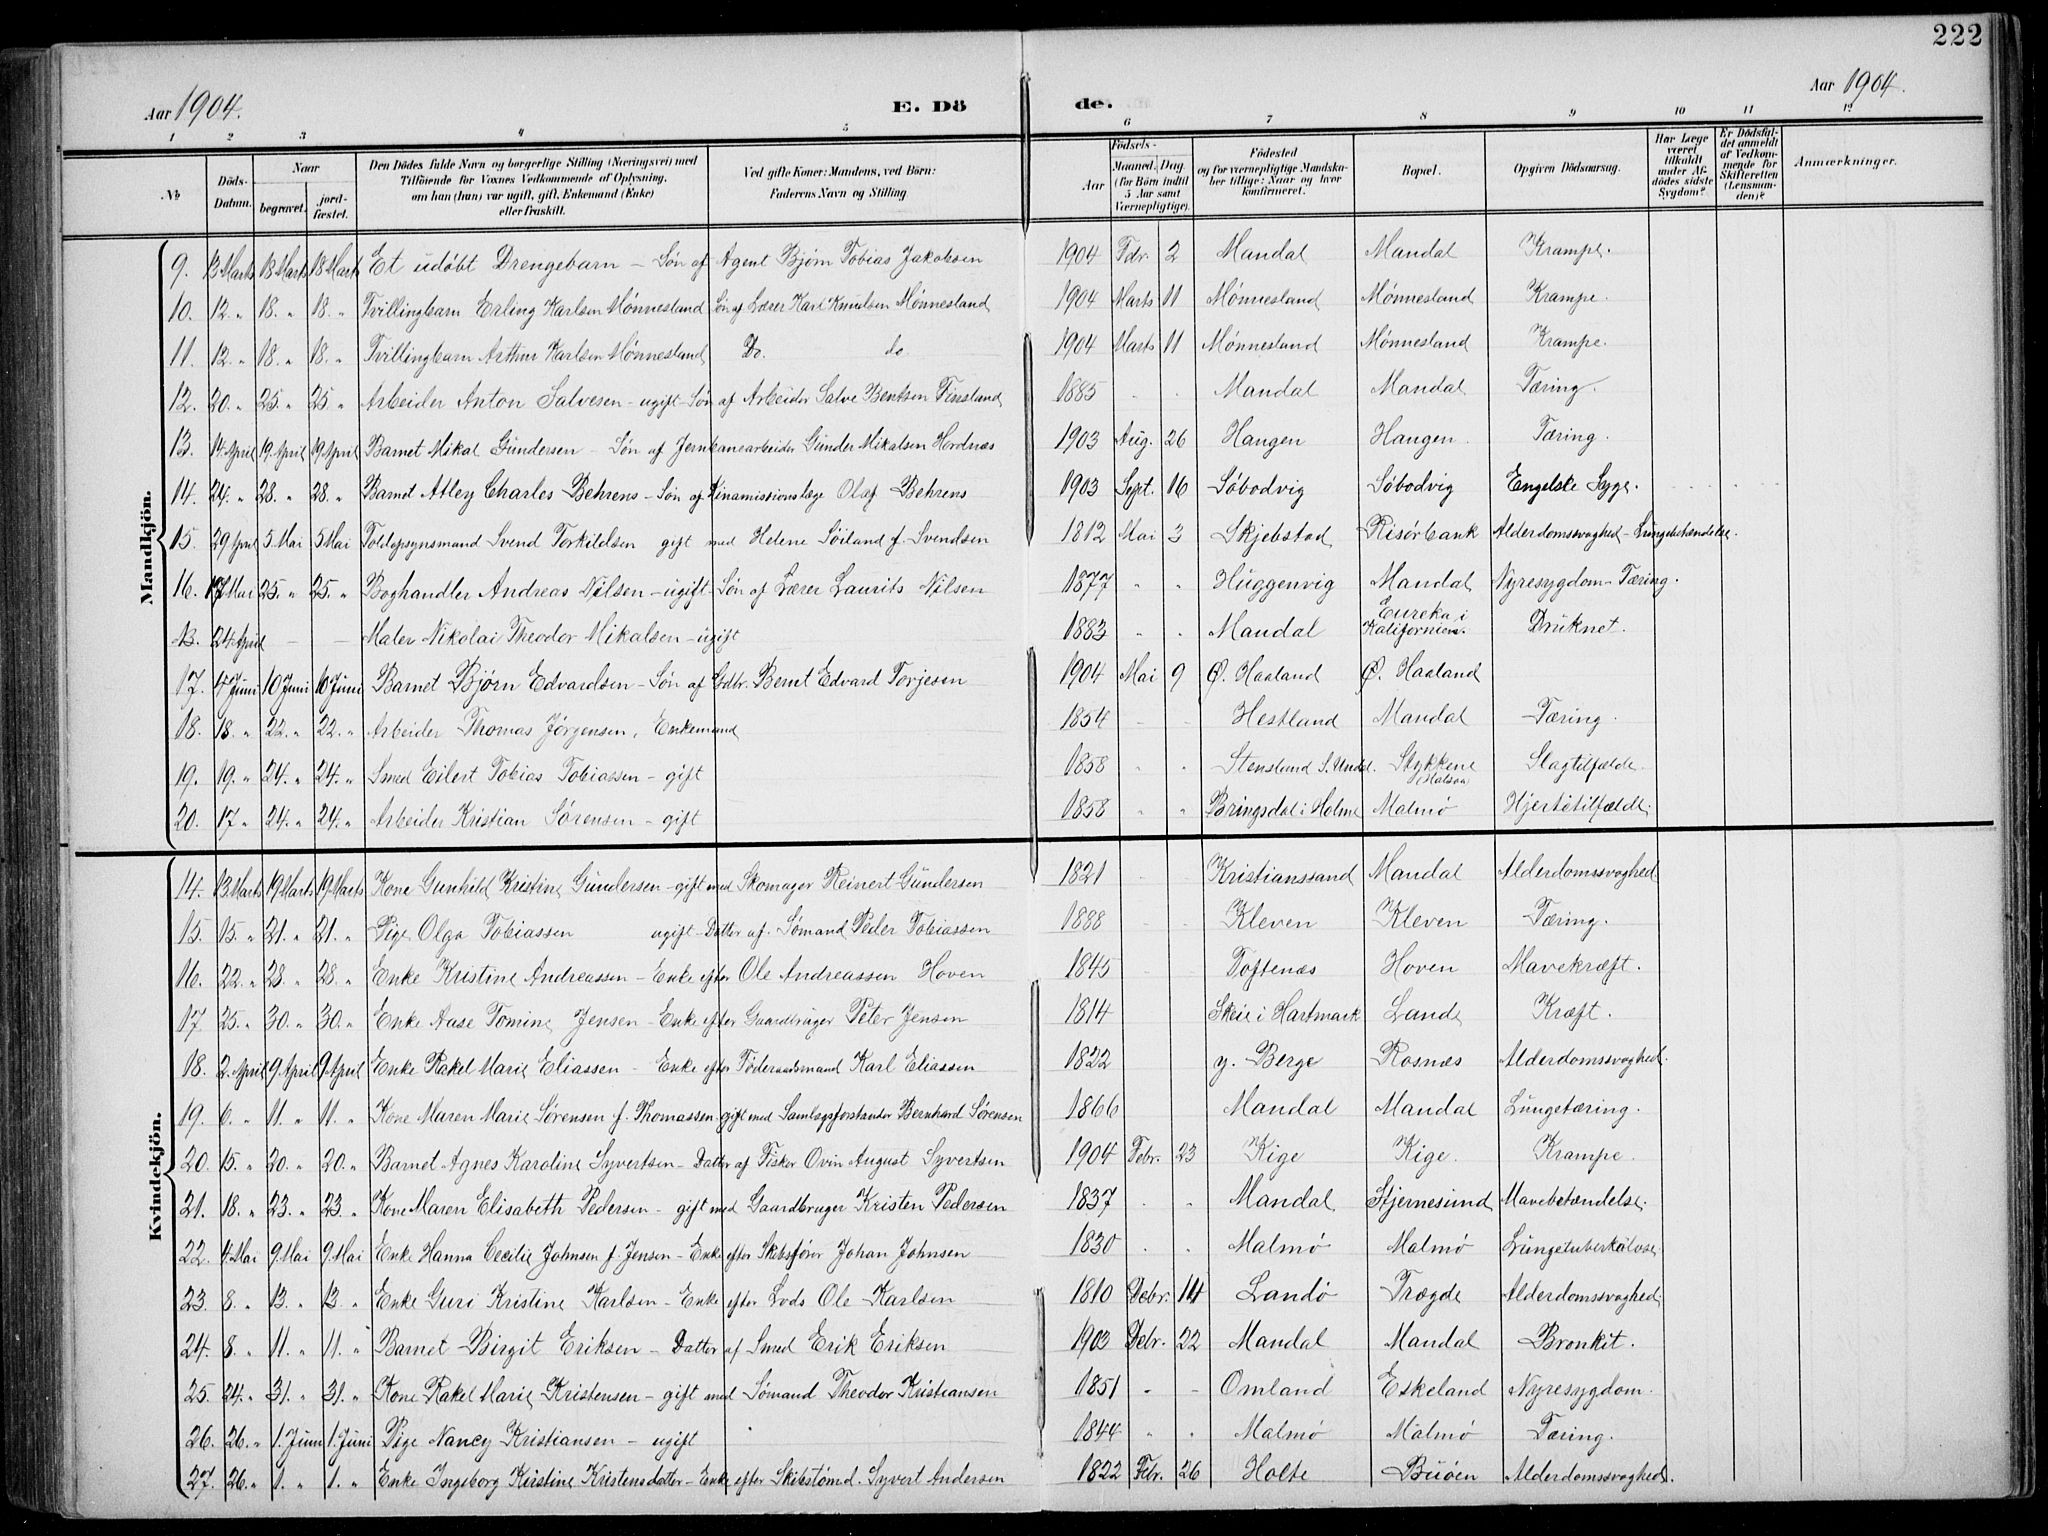 222
Aar 1904.
E. Dö de.
Aar 1904.
1 2 3 4 5 6 7 8 9 10 11 12
No.
Döds-Datum.
Naar begravet. jordfæstet.
Den Dödes fulde Navn og borgerlige Stilling (Næringsvei) med Tilföiende for Voxnes Vedkommende af Oplysning, om han (hun) var ugift, gift, Enkemand (Enke) eller fraskilt.
Ved gifte Koner: Mandens, ved Börn: Faderens Navn og Stilling.
Födsels-
Aar Maaned. Dag. (for Börn indtil 5 Aar samt Værnepligtige).
Födested og for værnepligtige Mandskaber tillige: Naar og hvor konfirmeret.
Bopæl.
Opgiven Dödsaarsag.
Har Læge været tilkaldt under Afdödes sidste Sygdom?
Er Dödsfaldet anmeldt af Vedkommende for Skifteretten (Lensmanden)?
Anmærkninger.
Mandkjön.
9. 13 Marts 18 Marts 18 Marts Et udøbt Drengebarn – Søn af Agent Bjørn Tobias Jakobsen 1904 Febr. 2 Mandal Mandal Krampe.
10. 12. " 18. " 18. " Tvillingbarn Erling Karlsen Mønnesland Søn af Lærer Karl Knudsen Mønnesland 1904 Marts 11 Mønnesland Mønnesland Krampe.
11. 12. " 18. " 18. " Tvillingbarn Arthur Karlsen Mønnesland Do. do 1904 Marts 11 Mønnesland Mønnesland Krampe.
12. 20. " 25. " 25. " Arbeider Anton Salvesen – ugift – Søn af Arbeider Salve Bentsen Finsland 1885 " " Mandal Mandal Tæring.
13. 14. April 19. April 19. April Barnet Mikal Gundersen – Søn af Jernbanearbeider Gunder Mikalsen Hordnæs 1903 Aug. 26 Hangen Hangen. Tæring.
14. 24. " 28. " 28. " Barnet Atley Charles Behrens – Søn af Kinamissionslæge Olaf Behrens 1903 Sept. 16 Søbodvig Søbodvig Engelske Syge.
15. 29 April 5. Mai 5 Mai Toldopsynsmand Svend Torkildsen gift med Helene Søiland f. Svendsen 1812 Mai 3 Skjebstad Risørbank Alderdomssvaghed – Lungebetændelse.
16. 17 Mai 25. " 25. " Boghandler Andreas Nilsen – ugift – Søn af Lærer Laurits Nilsen 1877 " " Huggenvig Mandal Nyresygdom – Tæring.
13. 24 April – – Maler Nikolai Theodor Mikalsen – ugift 1883 " " Mandal Eureka i Kalifornien. Druknet.
17. 4 Juni 10 Juni 10 Juni Barnet Bjørn Edvardsen – Søn af Gdbr. Bernt Edvard Torjesen 1904 Mai 9 Ø. Haaland Ø. Haaland
18. 18. " 22. " 22. " Arbeider Thomas Jørgensen, Enkemand 1854 " " Hestland Mandal Tæring.
19. 19. " 24. " 24. " Smed Eilert Tobias Tobiassen – gift 1858 " " Stensland S. Undal. Stykkene Slagtilfælde.
20. 17 " 24. " 24. " Arbeider Kristian Sørensen – gift 1858 " " Bringsdal i Holme Malmø Hjertetilfælde.
Kvindekjön.
14. 13. Marts 19 Marts 19 Marts Kone Gunhild Kristine Gundersen – gift med Skomager Reinert Gundersen 1821 Kristianssand Mandal Alderdomssvaghed
15. 15. " 21. " 21. " Pige Olga Tobiassen ugift – Datter af. Sømand Peder Tobiassen 1888 Kleven Kleven Tæring.
16. 22. " 28. " 28. " Enke Kristine Andreassen – Enke efter Ole Andreassen Hoven 1845 Toftenæs Hoven Mavekræft.
17 25. " 30. " 30. " Enke Aase Tomine Jensen – Enke efter Gaardbruger Peter Jensen 1814 Skeie i Hartmark Lande Kræft.
18. 2. April 9 April 9 April Enke Rakel Marie Eliassen – Enke efter Føderaadsmand Karl Eliassen 1822 y. Berge Rosnæs Alderdomssvaghed.
19. 6. " 11. " 11. " Kone Maren Marie Sørensen f. Thomassen gift med Samlagsforstander Bernhard Sørensen 1866 Mandal Mandal Lungetæring.
20. 15. " 20. " 20. " Barnet Agnes Karoline Syvertsen – Datter af Fisker Ovin August Syvertsen 1904 Febr. 23 Kige Kige. Krampe.
21. 18. " 23. " 23. " Kone Maren Elisabeth Pedersen – gift med Gaardbruger Kristen Pedersen 1837 " " Mandal Stjernesund Mavebetændelse.
22. 4. Mai 9. Mai 9. Mai Enke Hanna Cecilie Johnsen f. Jensen – Enke efter Skibsfører Johan Johnsen 1830 " " Malmø Malmø Lungetuberkulose.
23. 8. " 13. " 13. " Enke Guri Kristine Karlsen – Enke efter Lods Ole Karlsen 1810 Debr. 14 Landø Trægde Alderdomssvaghed
24. 8. " 11. " 11. " Barnet Birgit Eriksen – Datter af Smed Erik Eriksen 1903 Debr. 22 Mandal Mandal Bronkit.
25. 24. " 31. " 31. " Kone Rakel Marie Kristensen – gift med Sømand Theodor Kristiansen 1851 " " Omland Eskeland Nyresygdom.
26. 26. " 1. Juni 1. Juni Pige Nancy Kristiansen – ugift 1844 " " Malmø Malmø Tæring.
27. 26. " 1. " 1. " Enke Ingeborg Kirstine Kristensdatter – Enke efter Skibstømd. Syvert Andersen 1822 Febr. 26 Holte Buøen Alderdomssvaghed.